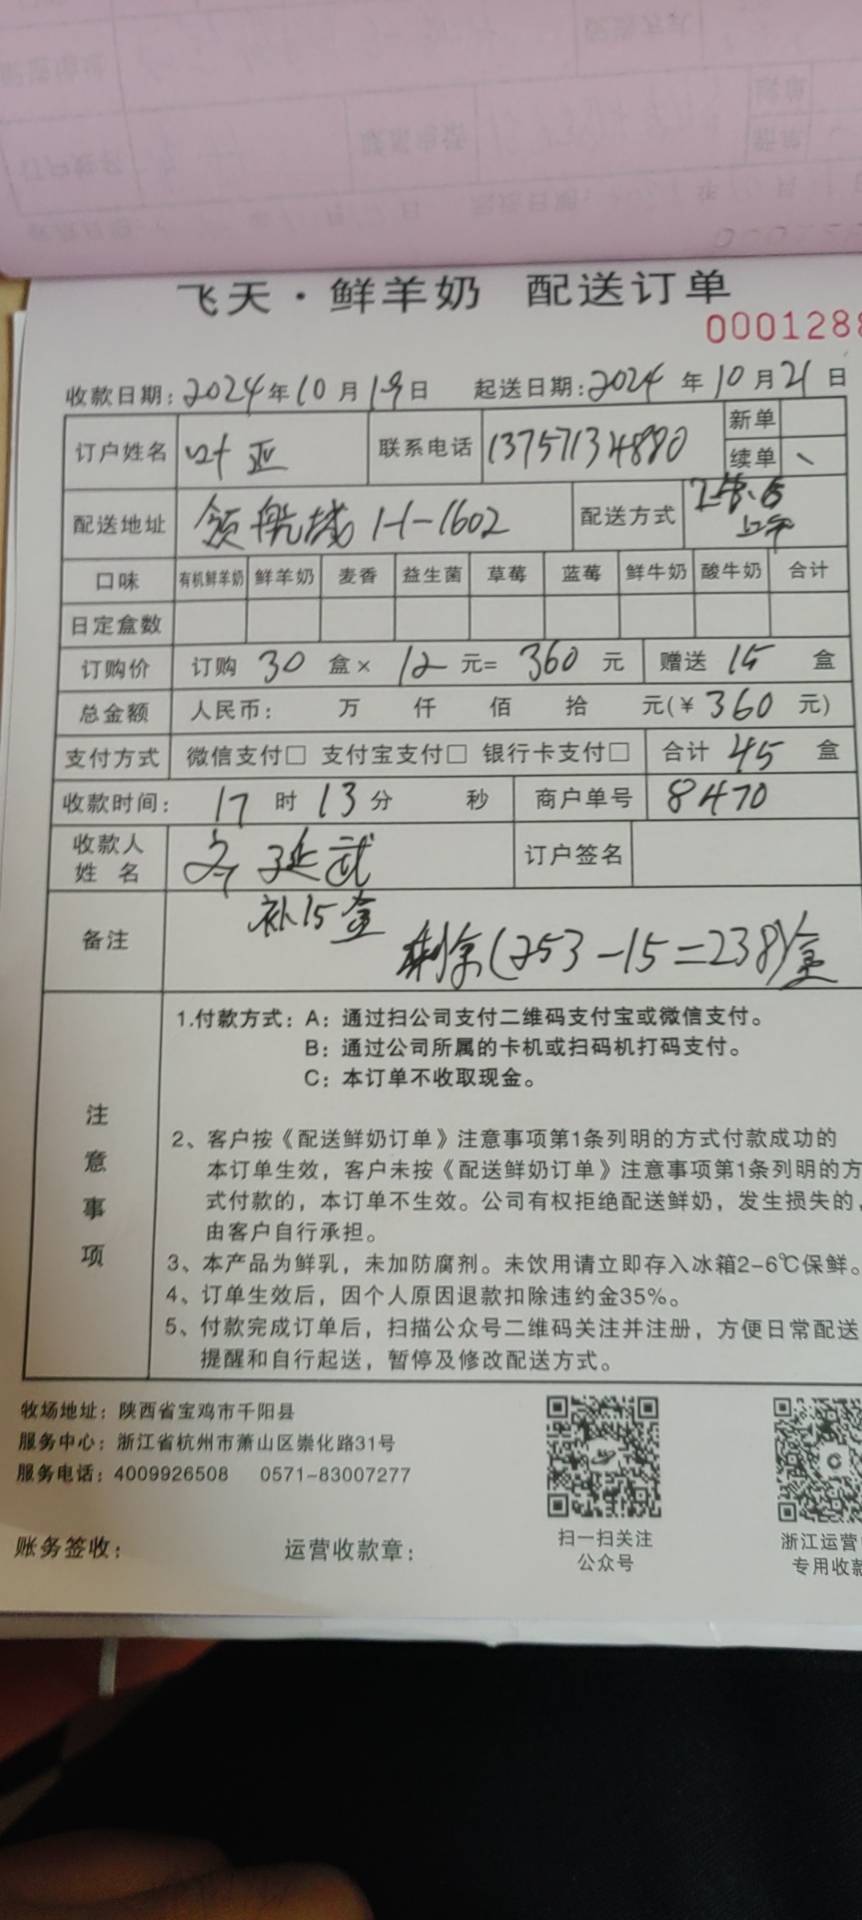 飞天·鲜羊奶 配送订单
000128
收款日期：2024年10月19日 起送日期：2024年10月21日
订户姓名 叶亚 联系电话 13757134880 新单
续单 、
配送地址 领航城 1-1-1602 配送方式
口味 有机鲜羊奶 鲜羊奶 麦香 益生菌 草莓 蓝莓 鲜牛奶 酸牛奶 合计
日定盒数
订购价 订购 30 盒× 12 元= 360 元 赠送 15 盒
总金额 人民币： 万 仟 佰 拾 元(￥360元)
支付方式 微信支付□ 支付宝支付□ 银行卡支付□ 合计 45 盒
收款时间： 17 时 13 分 秒 商户单号 8470
收款人
姓 名 延武 订户签名
备注 补15盒
剩余(253-15=238)盒
注意事项
1.付款方式：A：通过扫公司支付二维码支付宝或微信支付。
B：通过公司所属的卡机或扫码机打码支付。
C：本订单不收取现金。
2、客户按《配送鲜奶订单》注意事项第1条列明的方式付款成功的
本订单生效，客户未按《配送鲜奶订单》注意事项第1条列明的方
式付款的，本订单不生效。公司有权拒绝配送鲜奶，发生损失的，
由客户自行承担。
3、本产品为鲜乳，未加防腐剂。未饮用请立即存入冰箱2-6℃保鲜。
4、订单生效后，因个人原因退款扣除违约金35%。
5、付款完成订单后，扫描公众号二维码关注并注册，方便日常配送
提醒和自行起送，暂停及修改配送方式。
牧场地址：陕西省宝鸡市千阳县
服务中心：浙江省杭州市萧山区崇化路31号
服务电话：4009926508 0571-83007277
账务签收： 运营收款章：
扫一扫关注
公众号
浙江运营
专用收款